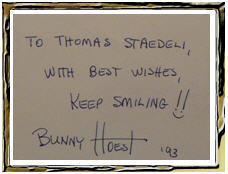 TO THOMAS STAEDELI,
WITH BEST WISHES,
KEEP SMILING!!
BUNNY HOEST '93